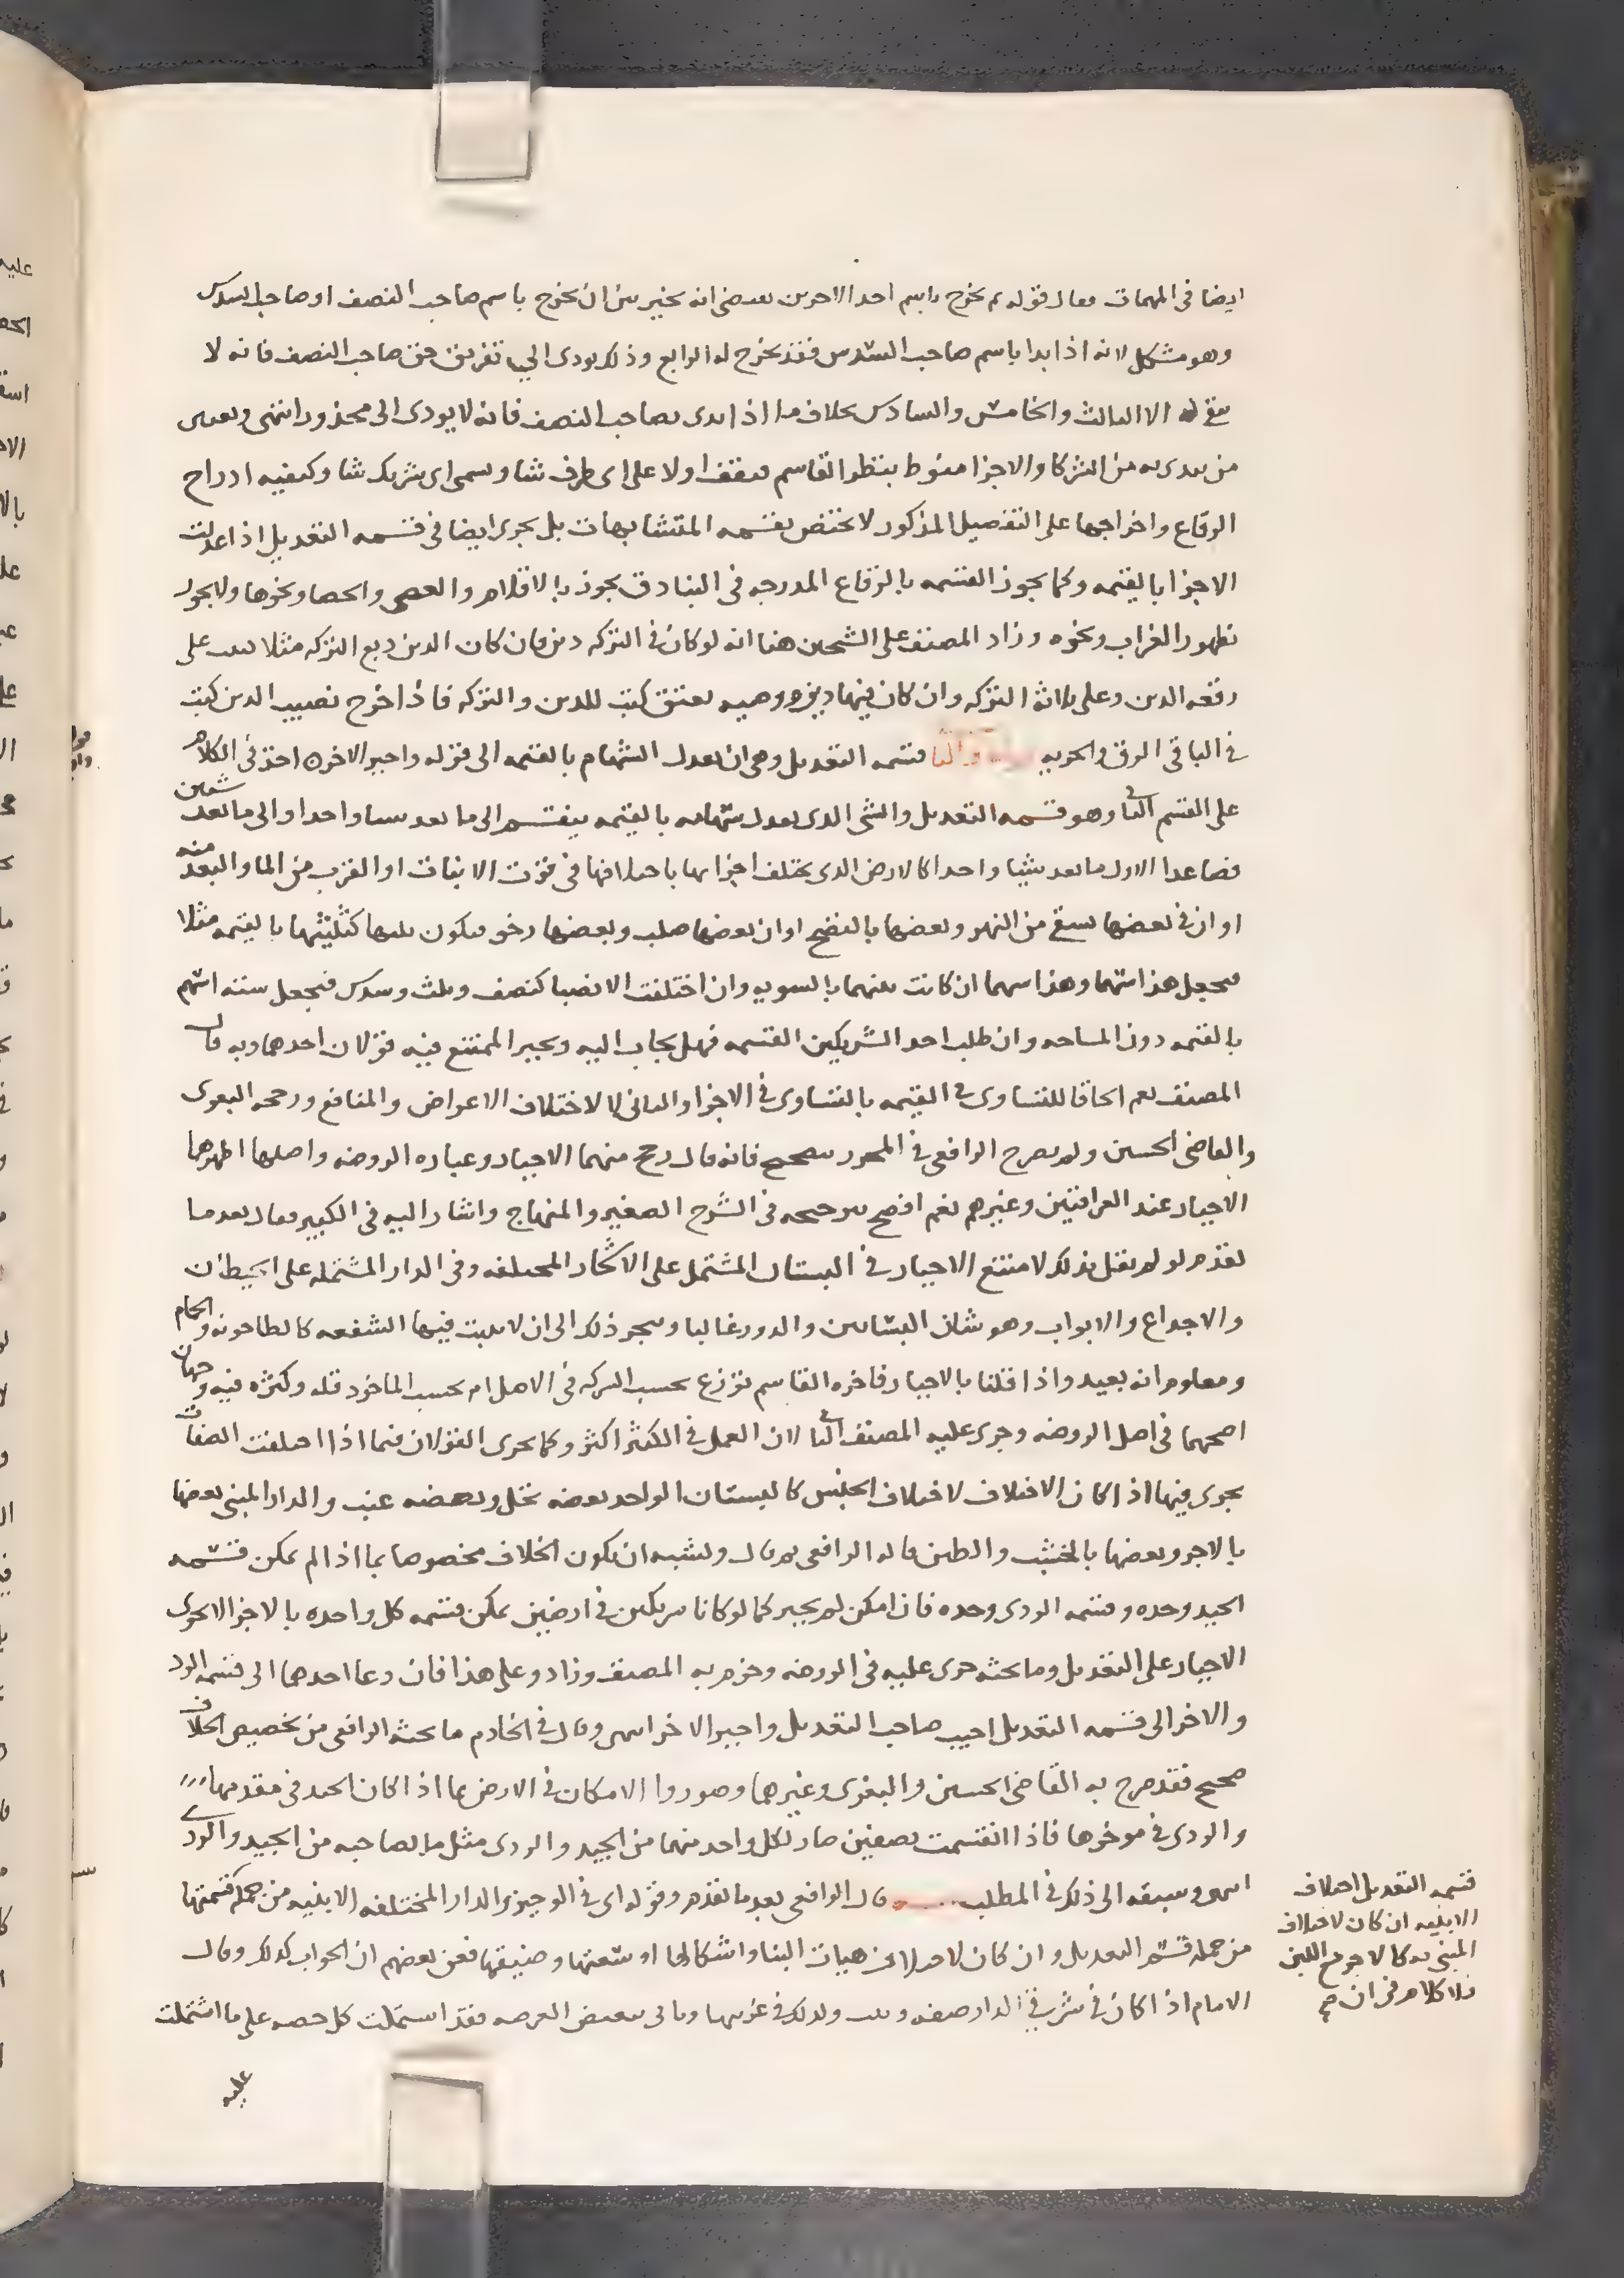 ايضا في المهمات فقال قوله ثم يخرج باسم احد الاخرين يقتضي انه يخير بين ان يخرج باسم صاحب النصف او صاحب السدس
وهو مشكل لانه اذا بدا باسم صاحب السدس فقد يخرج له الرابع وذلك يودي الي تفريق حق صاحب النصف فانه لا
يبقى له الا الثالث والخامس والسادس بخلاف ما اذا بدى بصاحب النصف فانه لا يودى الى محذور انتهى وتعيين
من يبدى به من الشركا والاجزا منوط بنظر القاسم فيقف اولا على اى طرف شا ويسمى اى شريك شا وكيفيه ادراج
الرقاع واخراجها على التفصيل المذكور لا يختص بقسمه المتشابهات بل يجرى ايضا في قسمه التعديل اذا عدلت
الاجزا بالقيمه وكما يجوز القسمه بالرقاع المدرجه في البنادق يجوز بالاقلام والعصى والحصا ونحوها ولا يجوز
بظهور الغراب ونحوه وزاد المصنف على الشيخين هنا انه لو كان في التركه دين فان كان الدين ربع التركه مثلا كتب على
رقعه الدين وعلى ثلاثه التركه وان كان فيها دين ووصيه بعتق كتب للدين والتركه فاذا خرج نصيب الدين كتب
في الباقى الرق والحريه قسمه التعديل وهي ان تعدل السهام بالقيمه الى قوله واجبر الاخر اخذ في الكلام
على القسم الثاني وهو قسمه التعديل والشي الذى يعدل سهامه بالقيمه ينقسم الى ما يعد شيا واحدا والى ما يعد شيين
فصاعدا الاول ما يعد شيئا واحدا كالارض الذى يختلف اجزاوها باختلافها في قوت الانبات او القرب من الما والبعد منه
او ان في بعضها يسقى من النهر وبعضها بالنضح او ان بعضها صلب وبعضها رخو فيكون ثلثها كثلثيها بالقيمه مثلا
فيجعل هذا سهما وهذا سهما ان كانت بينهما بالسويه وان اختلفت الانصبا كنصف وثلث وسدس فيجعل سته اسهم
بالقيمه دون المساحه وان طلب احد الشريكين القسمه فهل يجاب اليه ويجبر الممتنع فيه قولان احدهما وبه قال
المصنف نعم الحاقا للتساوى في القيمه بالتساوى في الاجزا والثاني لا لاختلاف الاعراض والمنافع ورجحه البغوى
والقاضى الحسين ولم يصرح الرافعى في المحرر بتصحيح فانه قال رجح منهما الاجبار وعباره الروضه واصلها اظهرهما
الاجبار عند العراقيين وغيرهم نعم افصح بترجيحه في الشرح الصغير والمنهاج واشار اليه في الكبير فقال بعد ما
تقدم لو لم نقل بذلك لامتنع الاجبار في البستان المشتمل على الاشجار المختلفه وفي الدار المشتمله على الحيطان
والاجذاع والابواب وهو شان البساتين والدور غالبا وينجر ذلك الى ان لا يثبت فيها الشفعه كالطاحونه والحمام
ومعلوم انه بعيد واذا قلنا بالاجبار فاجره القاسم توزع بحسب الشركه في الاصل ام بحسب الماخوذ قله وكثره فيه وجهان
اصحهما في اصل الروضه وجرى عليه المصنف الثاني لان العمل في الكثير اكثر وكما يجرى القولان فيما اذا اختلفت الصفات
يجرى فيها اذا كان الاختلاف لاختلاف الجنس كالبستان الواحد بعضه نخل وبعضه عنب والدار المبنى بعضها
بالاجر وبعضها بالخشب والطين قاله الرافعى ثم قال ويشبه ان يكون الخلاف مخصوصا بما اذا لم يمكن قسمه
الجيد وحده وقسمه الردى وحده فان امكن لم يجبر كما لو كانا شريكين في ارضين يمكن قسمه كل واحده بالاجزا لا يجرى
الاجبار على التعديل وما بحثه جرى عليه في الروضه وجزم به المصنف وزاد وعلى هذا فان دعا احدهما الى قسمه الرد
والاخر الى قسمه التعديل اجيب صاحب التعديل واجبر الاخر انتهى وقال في الخادم ما بحثه الرافعى من تخصيص الخلاف
صحيح فقد صرح به القاضى الحسين والبغوى وغيرهما وصوروا الامكان في الارض بما اذا كان الجيد في مقدمها
والردى في موخرها فاذا انقسمت نصفين صار لكل واحد منهما من الجيد والردى مثل ما لصاحبه من الجيد والردى
انتهى وسبقه الى ذلك في المطلب قال الرافعى بعد ما تقدم وقوله اى في الوجيز والدار المختلفه الابنيه من جمله قسمتها
من جمله قسم التعديل وان كان لاختلاف هيات البنا واشكالها او سعتها وضيقها فعن بعضهم ان الجواب كذلك وقال
الامام اذا كان في شرقي الدار صفه وبيت وكذلك في غربيها وباقى بعيض العرصه فقد اشتملت كل حصه على ما اشتملت
عليه
قسمه التعديل اختلاف
الابنيه ان كان لاختلاف
المبنى به كالاجر مع اللبن
فلا كلام في ان